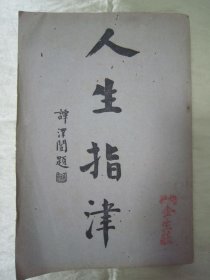 人生指津
譚澤闓題